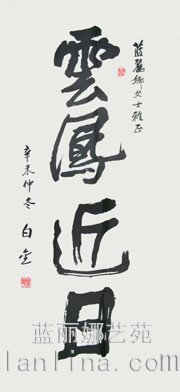 藍麗娜女士雅正
雲鳳近日
辛未仲冬
蓝丽娜艺苑
lanlina.com